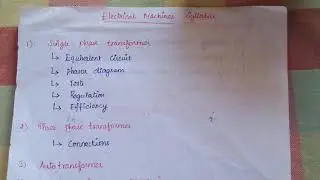 Electrical Machines Syllabus
1) Single phase transformer
↳ Equivalent Circuit
↳ Phasor diagram
↳ Tests
↳ Regulation
↳ Efficiency
2) Three phase transformer
↳ Connections
3) Auto transformer